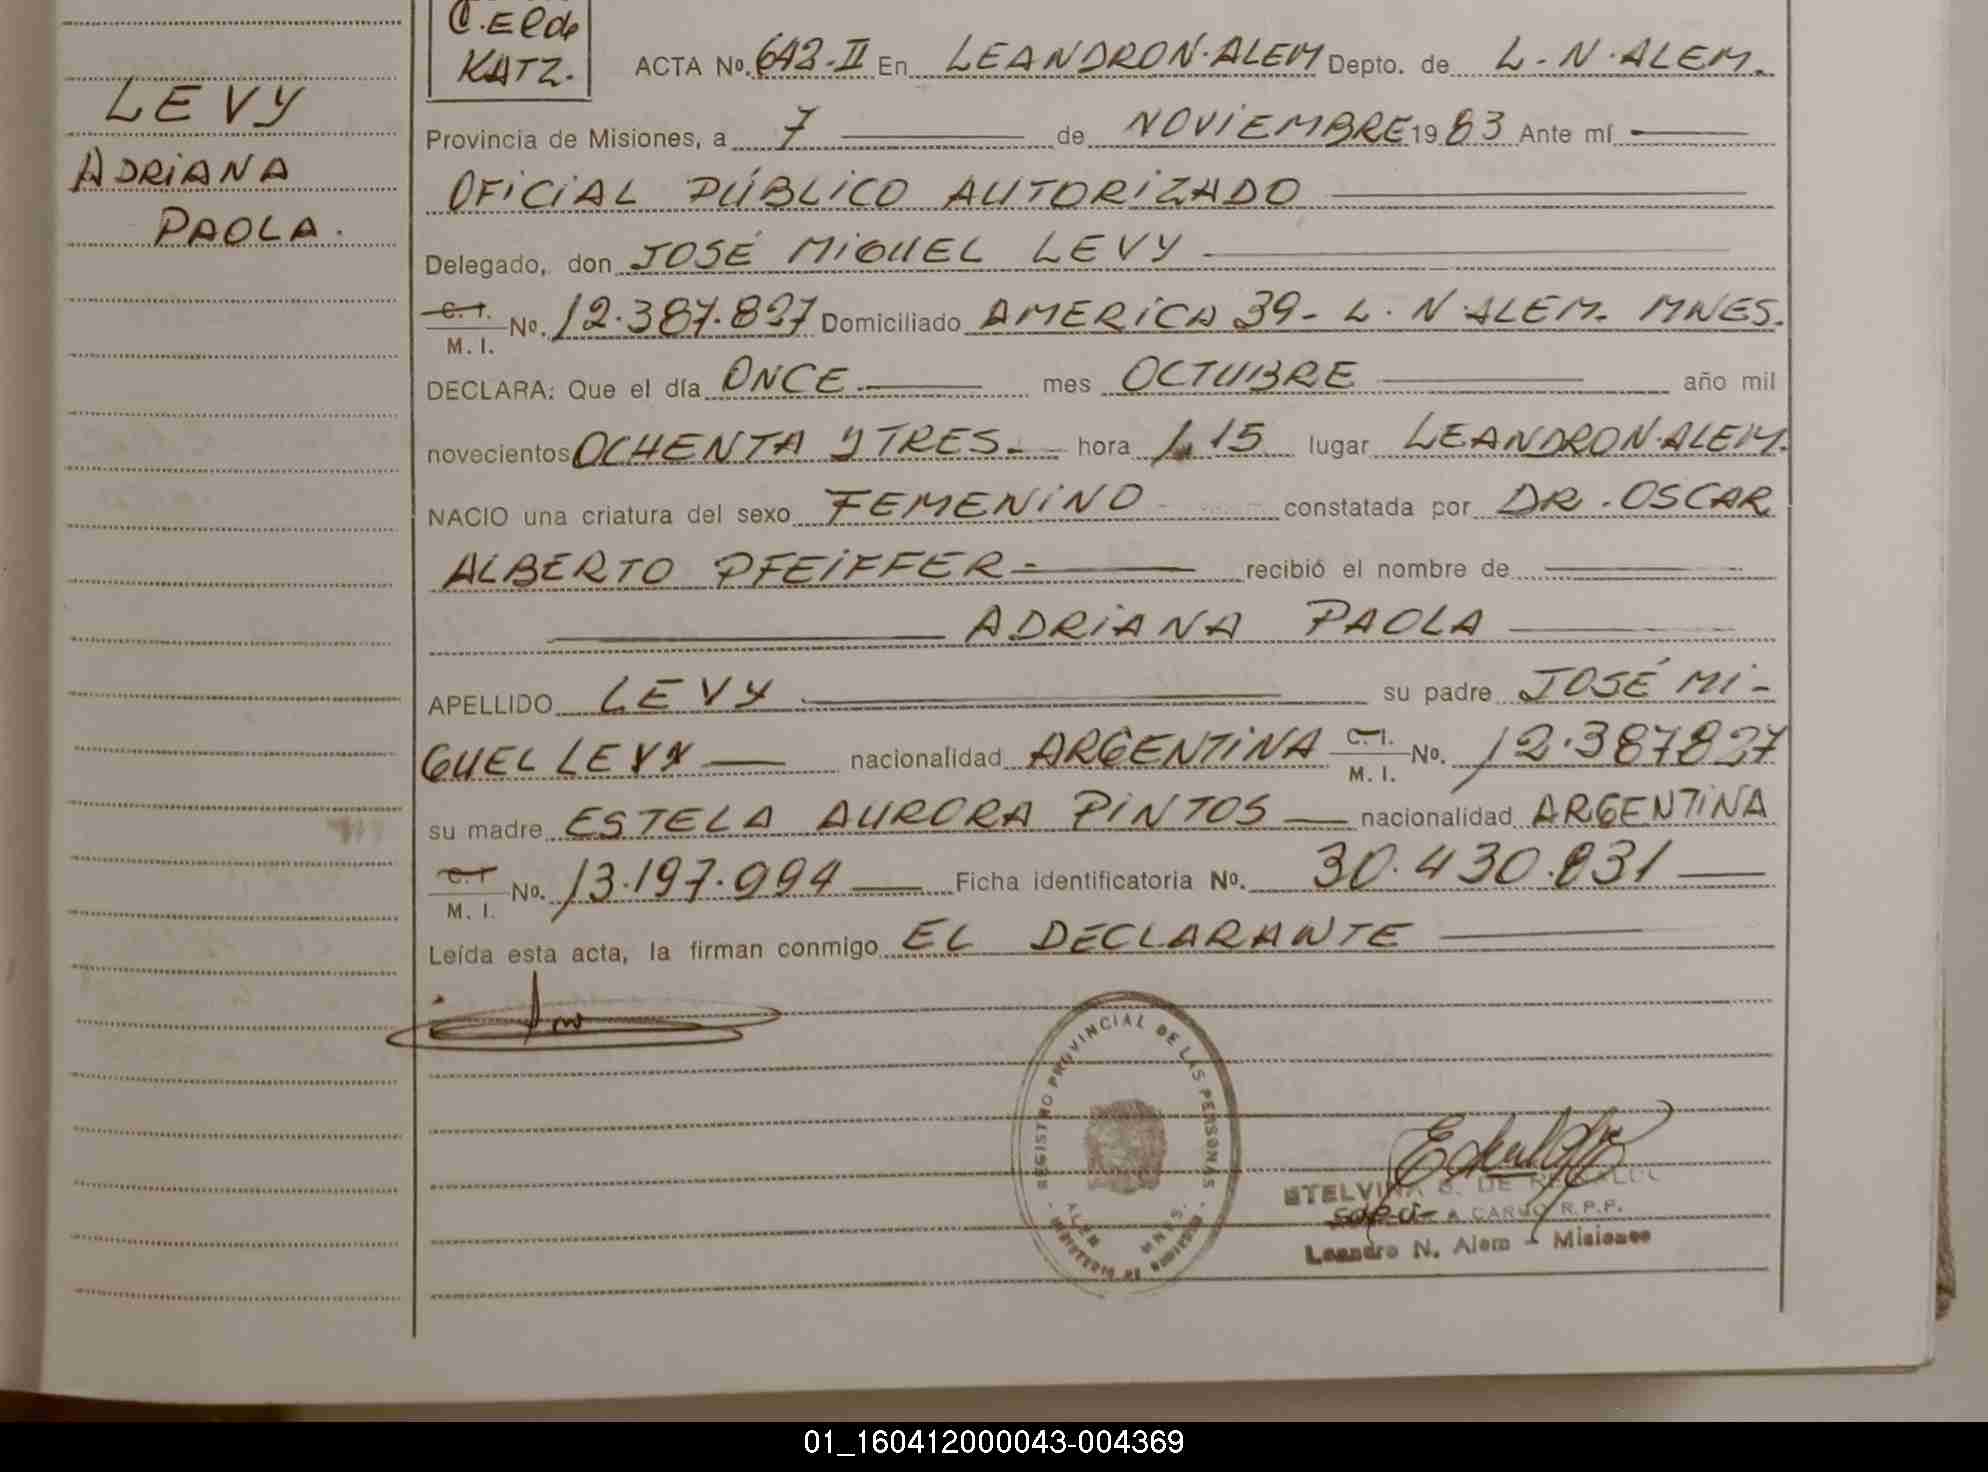 C. Elda
KATZ.
LEVY
ADRIANA
PAOLA.
ACTA Nº. 642-II En LEANDRO N. ALEM Depto. de L. N. ALEM.
Provincia de Misiones, a 7 de NOVIEMBRE 1983 Ante mí
OFICIAL PÚBLICO AUTORIZADO
Delegado, don JOSÉ MIGUEL LEVY
C. I. M. I. Nº. 12.387.827 Domiciliado AMERICA 39- L. N. ALEM. MNES.
DECLARA: Que el día ONCE mes OCTUBRE año mil
novecientos OCHENTA Y TRES.- hora 1,15 lugar LEANDRO N. ALEM.
NACIO una criatura del sexo FEMENINO constatada por DR. OSCAR
ALBERTO PFEIFFER- recibió el nombre de
ADRIANA PAOLA
APELLIDO LEVY su padre JOSÉ MI-
GUEL LEVY nacionalidad ARGENTINA C. I. M. I. Nº. 12.387827
su madre ESTELA AURORA PINTOS nacionalidad ARGENTINA
C. I. M. I. Nº. 13.197.994 Ficha identificatoria Nº. 30.430.831
Leída esta acta, la firman conmigo EL DECLARANTE
REGISTRO PROVINCIAL DE LAS PERSONAS
ALEM MNES.
MINISTERIO DE GOBIERNO
ETELVINA DE
A CARGO R.P.P.
Leandro N. Alem - Misiones
01_160412000043-004369